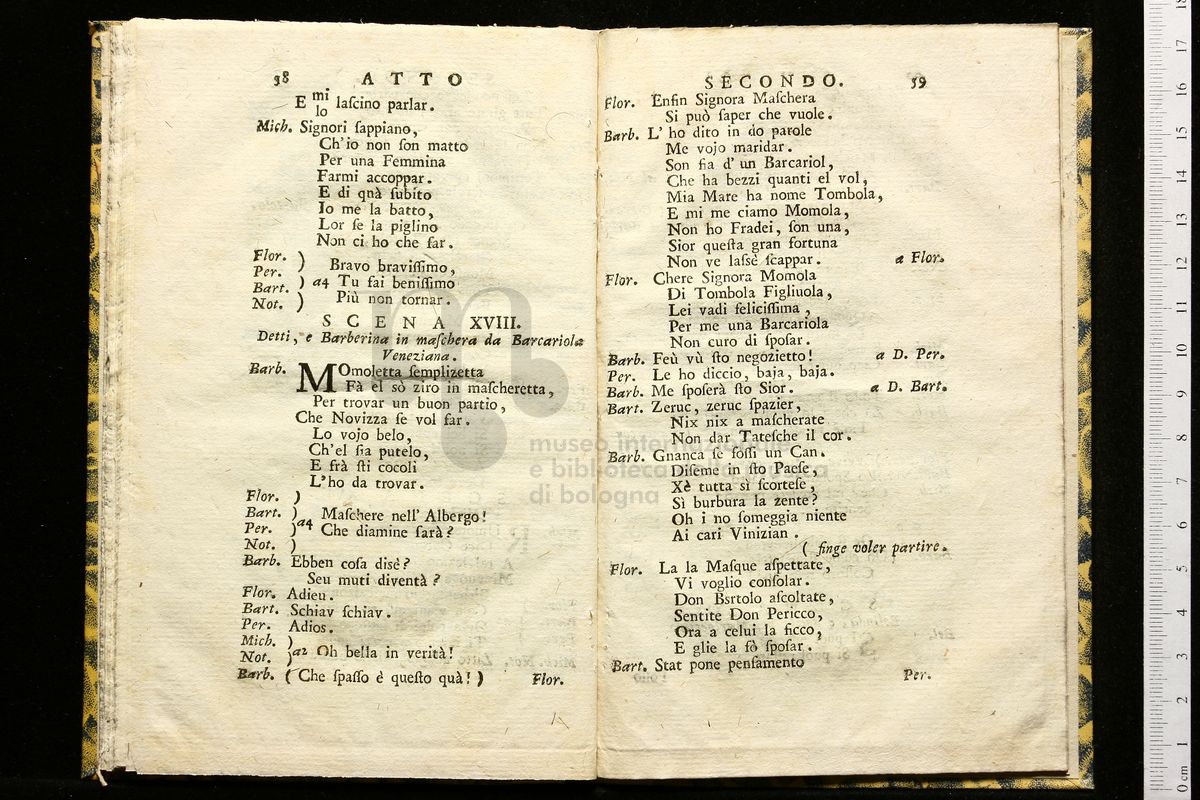 38 ATTO
E mi/lo laſcino parlar.
Mich. Signori ſappiano,
Ch'io non ſon matto
Per una Femmina
Farmi accoppar.
E di quà ſubito
Io me la batto,
Lor ſe la piglino
Non ci ho che far.
Flor. )
Per. ) Bravo braviſſimo,
Bart. ) a4 Tu fai beniſſimo
Not. ) Più non tornar.
SCENA XVIII.
Detti, e Barberina in maſchera da Barcariola
Veneziana.
Barb. MOmoletta ſemplizetta
Fà el sò ziro in maſcheretta,
Per trovar un buon partio,
Che Novizza ſe vol far.
Lo vojo belo,
Ch'el ſia putelo,
E frà ſti cocoli
L'ho da trovar.
Flor. )
Bart. ) Maſchere nell' Albergo!
Per. )a4 Che diamine ſarà?
Not. )
Barb. Ebben coſa disè?
Seu muti diventà?
Flor. Adieu.
Bart. Schiav ſchiav.
Per. Adios.
Mich. )
Not. )a2 Oh bella in verità!
Barb. ( Che ſpaſſo è queſto quà! ) Flor.
SECONDO. 39
Flor. Enfin Signora Maſchera
Si può ſaper che vuole.
Barb. L' ho dito in do parole
Me vojo maridar.
Son fia d' un Barcariol,
Che ha bezzi quanti el vol,
Mia Mare ha nome Tombola,
E mi me ciamo Momola,
Non ho Fradei, ſon una,
Sior queſta gran fortuna
Non ve laſsè ſcappar. a Flor.
Flor. Chere Signora Momola
Di Tombola Figliuola,
Lei vadi feliciſſima,
Per me una Barcariola
Non curo di ſpoſar.
Barb. Feù vù ſto negozietto! a D. Per.
Per. Le ho diccio, baja, baja.
Barb. Me ſpoſerà ſto Sior. a D. Bart.
Bart. Zeruc, zeruc ſpazier,
Nix nix a maſcherate
Non dar Tateſche il cor.
Barb. Gnanca ſe foſſi un Can.
Diſeme in ſto Paeſe,
Xè tutta sì ſcorteſe,
Sì burbura la zente?
Oh i no ſomeggia niente
Ai cari Vinizian.
( finge voler partire.
Flor. La la Maſque aſpettate,
Vi voglio conſolar.
Don Bsrtolo aſcoltate,
Sentite Don Pericco,
Ora a celui la ficco,
E glie la fò ſpoſar.
Bart. Stat pone penſamento
Per.
museo internazionale
e biblioteca della musica
di bologna
0 cm 1 2 3 4 5 6 7 8 9 10 11 12 13 14 15 16 17 18